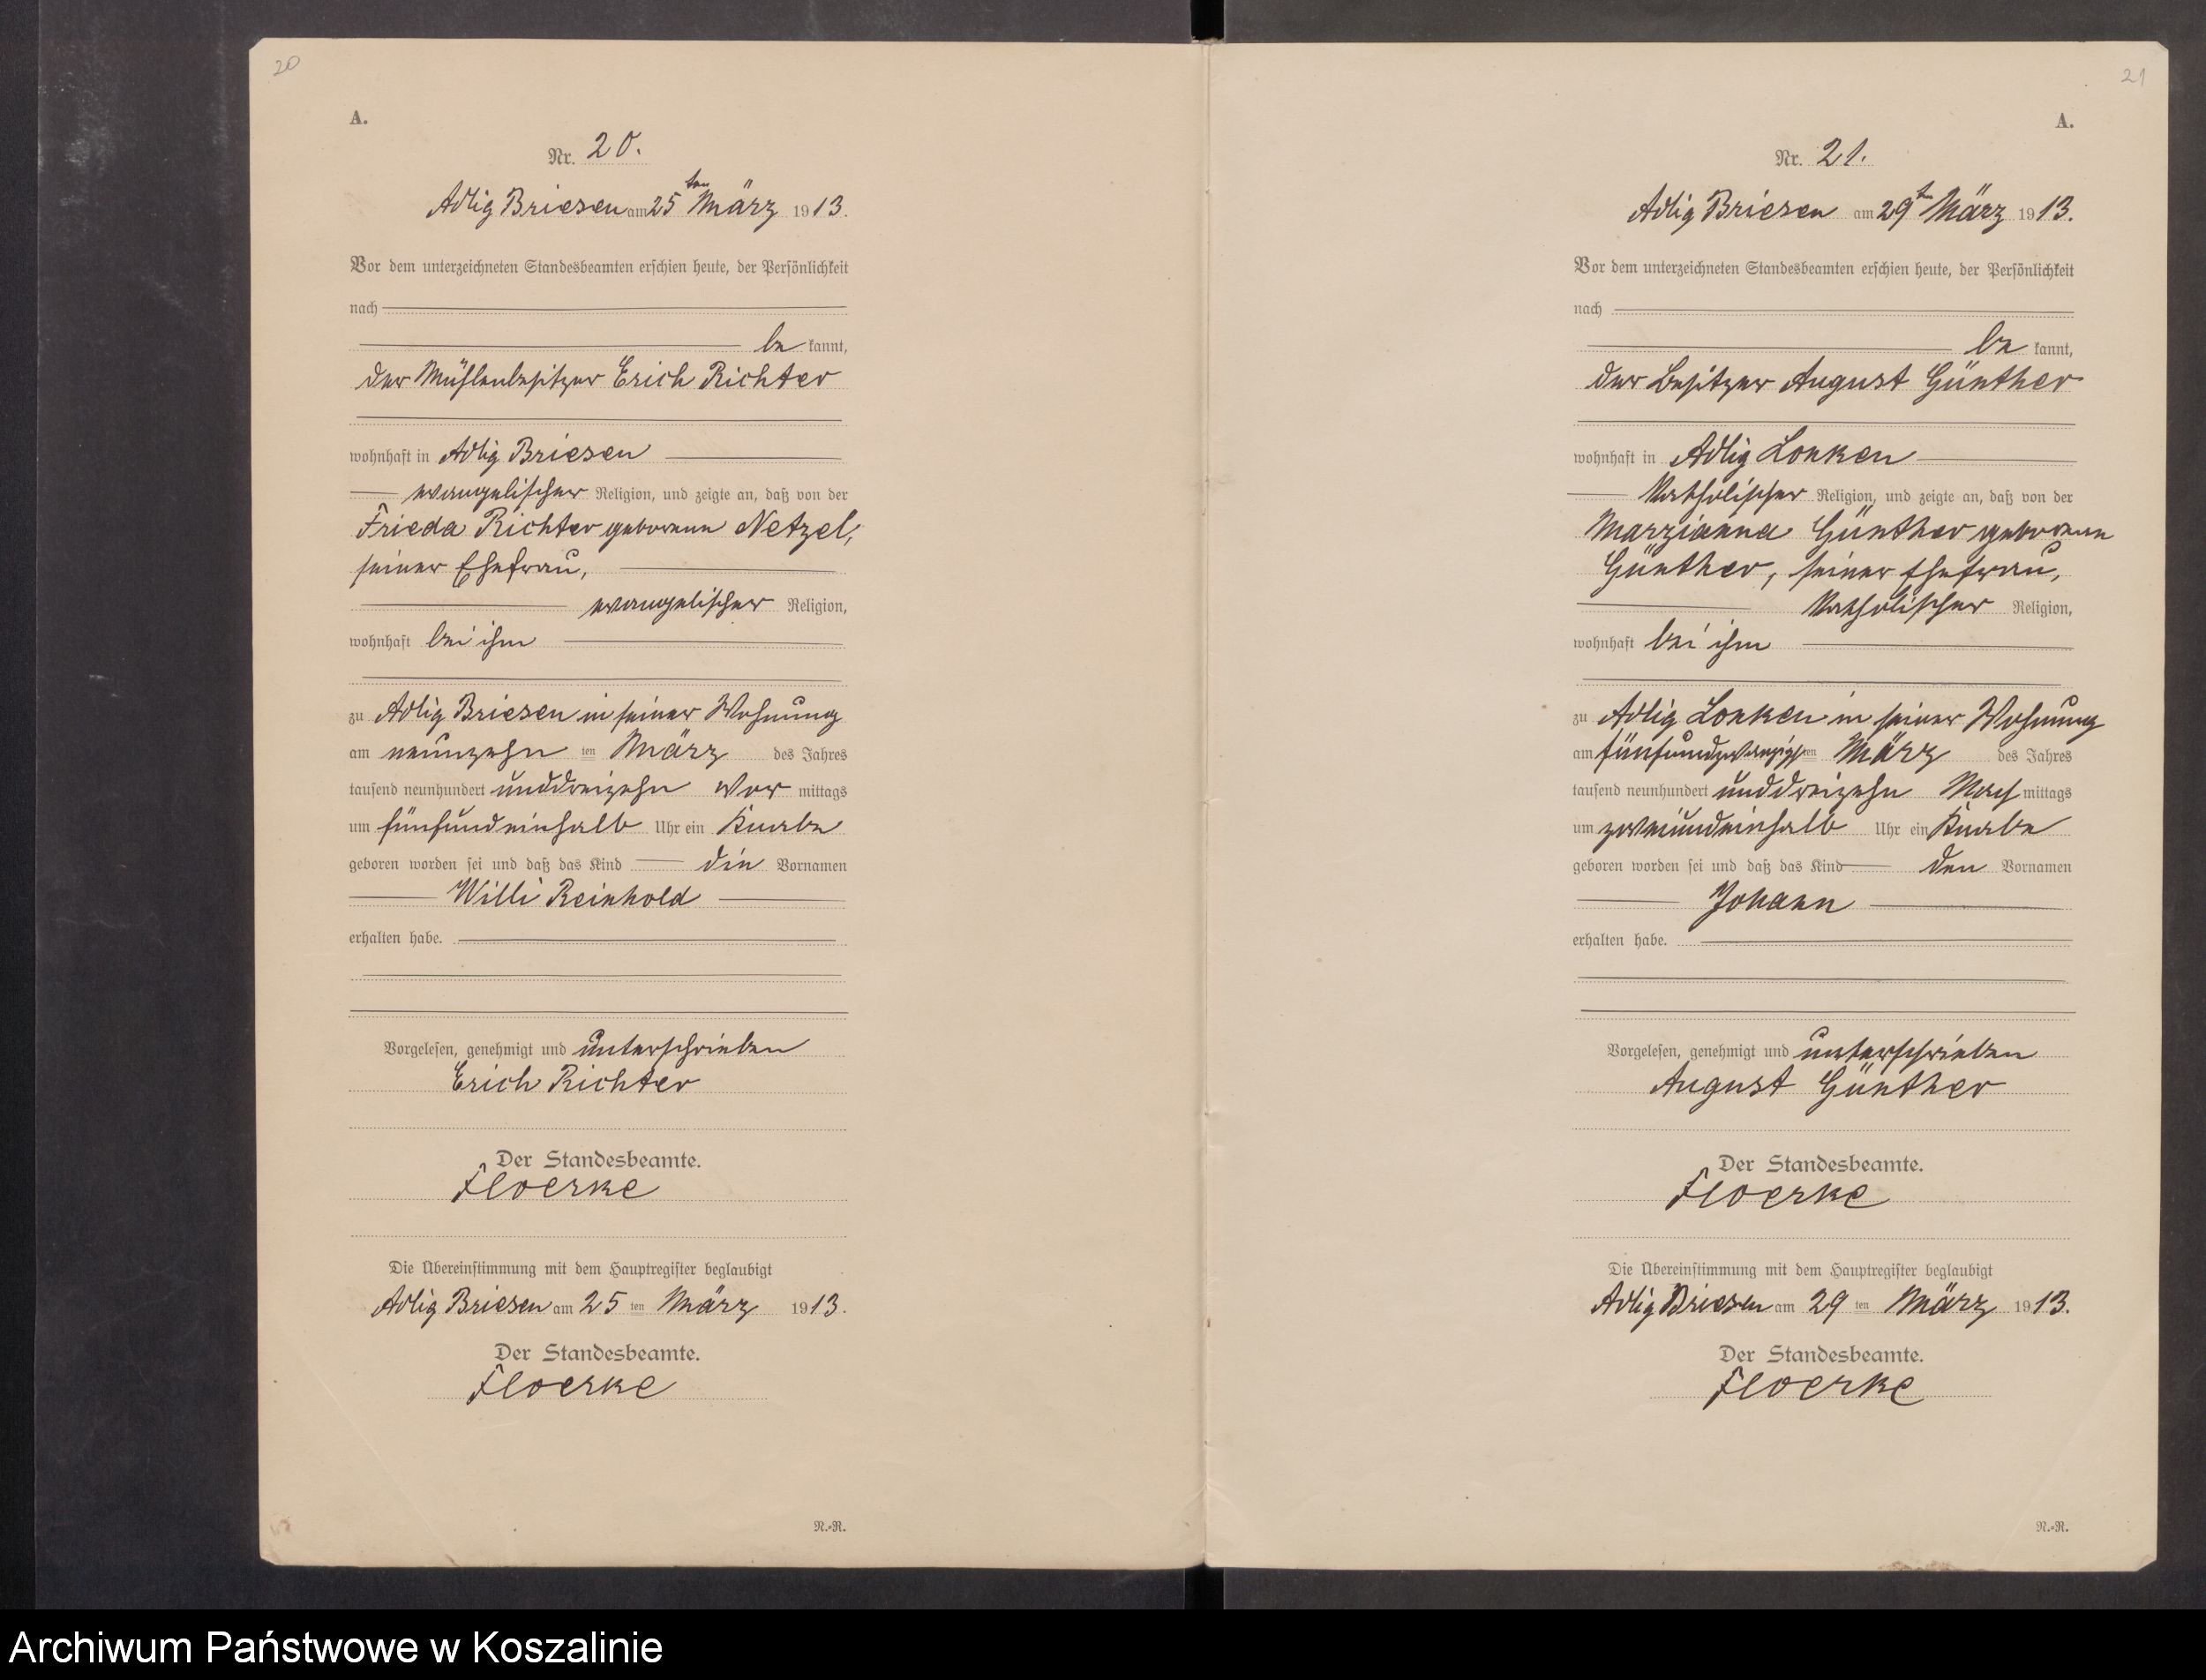 20
A.
Nr. 20.
Adlig Briesen am 25ten März 1913.
Vor dem unterzeichneten Standesbeamten erschien heute, der Persönlichkeit
nach
be kannt,
der Mühlenbesitzer Erich Richter
wohnhaft in Adlig Briesen
evangelischer Religion, und zeigte an, daß von der
Frieda Richter geborenen Netzel,
seiner Ehefrau,
evangelischer Religion,
wohnhaft bei ihm
zu Adlig Briesen in seiner Wohnung
am neunzehn ten März des Jahres
tausend neunhundert unddreizehn Vor mittags
um fünfundeinhalb Uhr ein Knabe
geboren worden sei und daß das Kind die Vornamen
Willi Reinhold
erhalten habe.
Vorgelesen, genehmigt und unterschrieben
Erich Richter
Der Standesbeamte.
Floerke
Die Übereinstimmung mit dem Hauptregister beglaubigt
Adlig Briesen am 25 ten März 1913.
Der Standesbeamte.
Floerke
N.-R.
21
A.
Nr. 21.
Adlig Briesen am 29ten März 1913.
Vor dem unterzeichneten Standesbeamten erschien heute, der Persönlichkeit
nach
be kannt,
der Besitzer August Günther
wohnhaft in Adlig Lonken
katholischer Religion, und zeigte an, daß von der
Marzianna Günther geborenen
Günther, seiner Ehefrau,
katholischer Religion,
wohnhaft bei ihm
zu Adlig Lonken in seiner Wohnung
am fünfundzwanzigsten März des Jahres
tausend neunhundert unddreizehn Nach mittags
um zweiundeinhalb Uhr ein Knabe
geboren worden sei und daß das Kind den Vornamen
Johann
erhalten habe.
Vorgelesen, genehmigt und unterschrieben
August Günther
Der Standesbeamte.
Floerke
Die Übereinstimmung mit dem Hauptregister beglaubigt
Adlig Briesen am 29 ten März 1913.
Der Standesbeamte.
Floerke
N.-R.
Archiwum Państwowe w Koszalinie